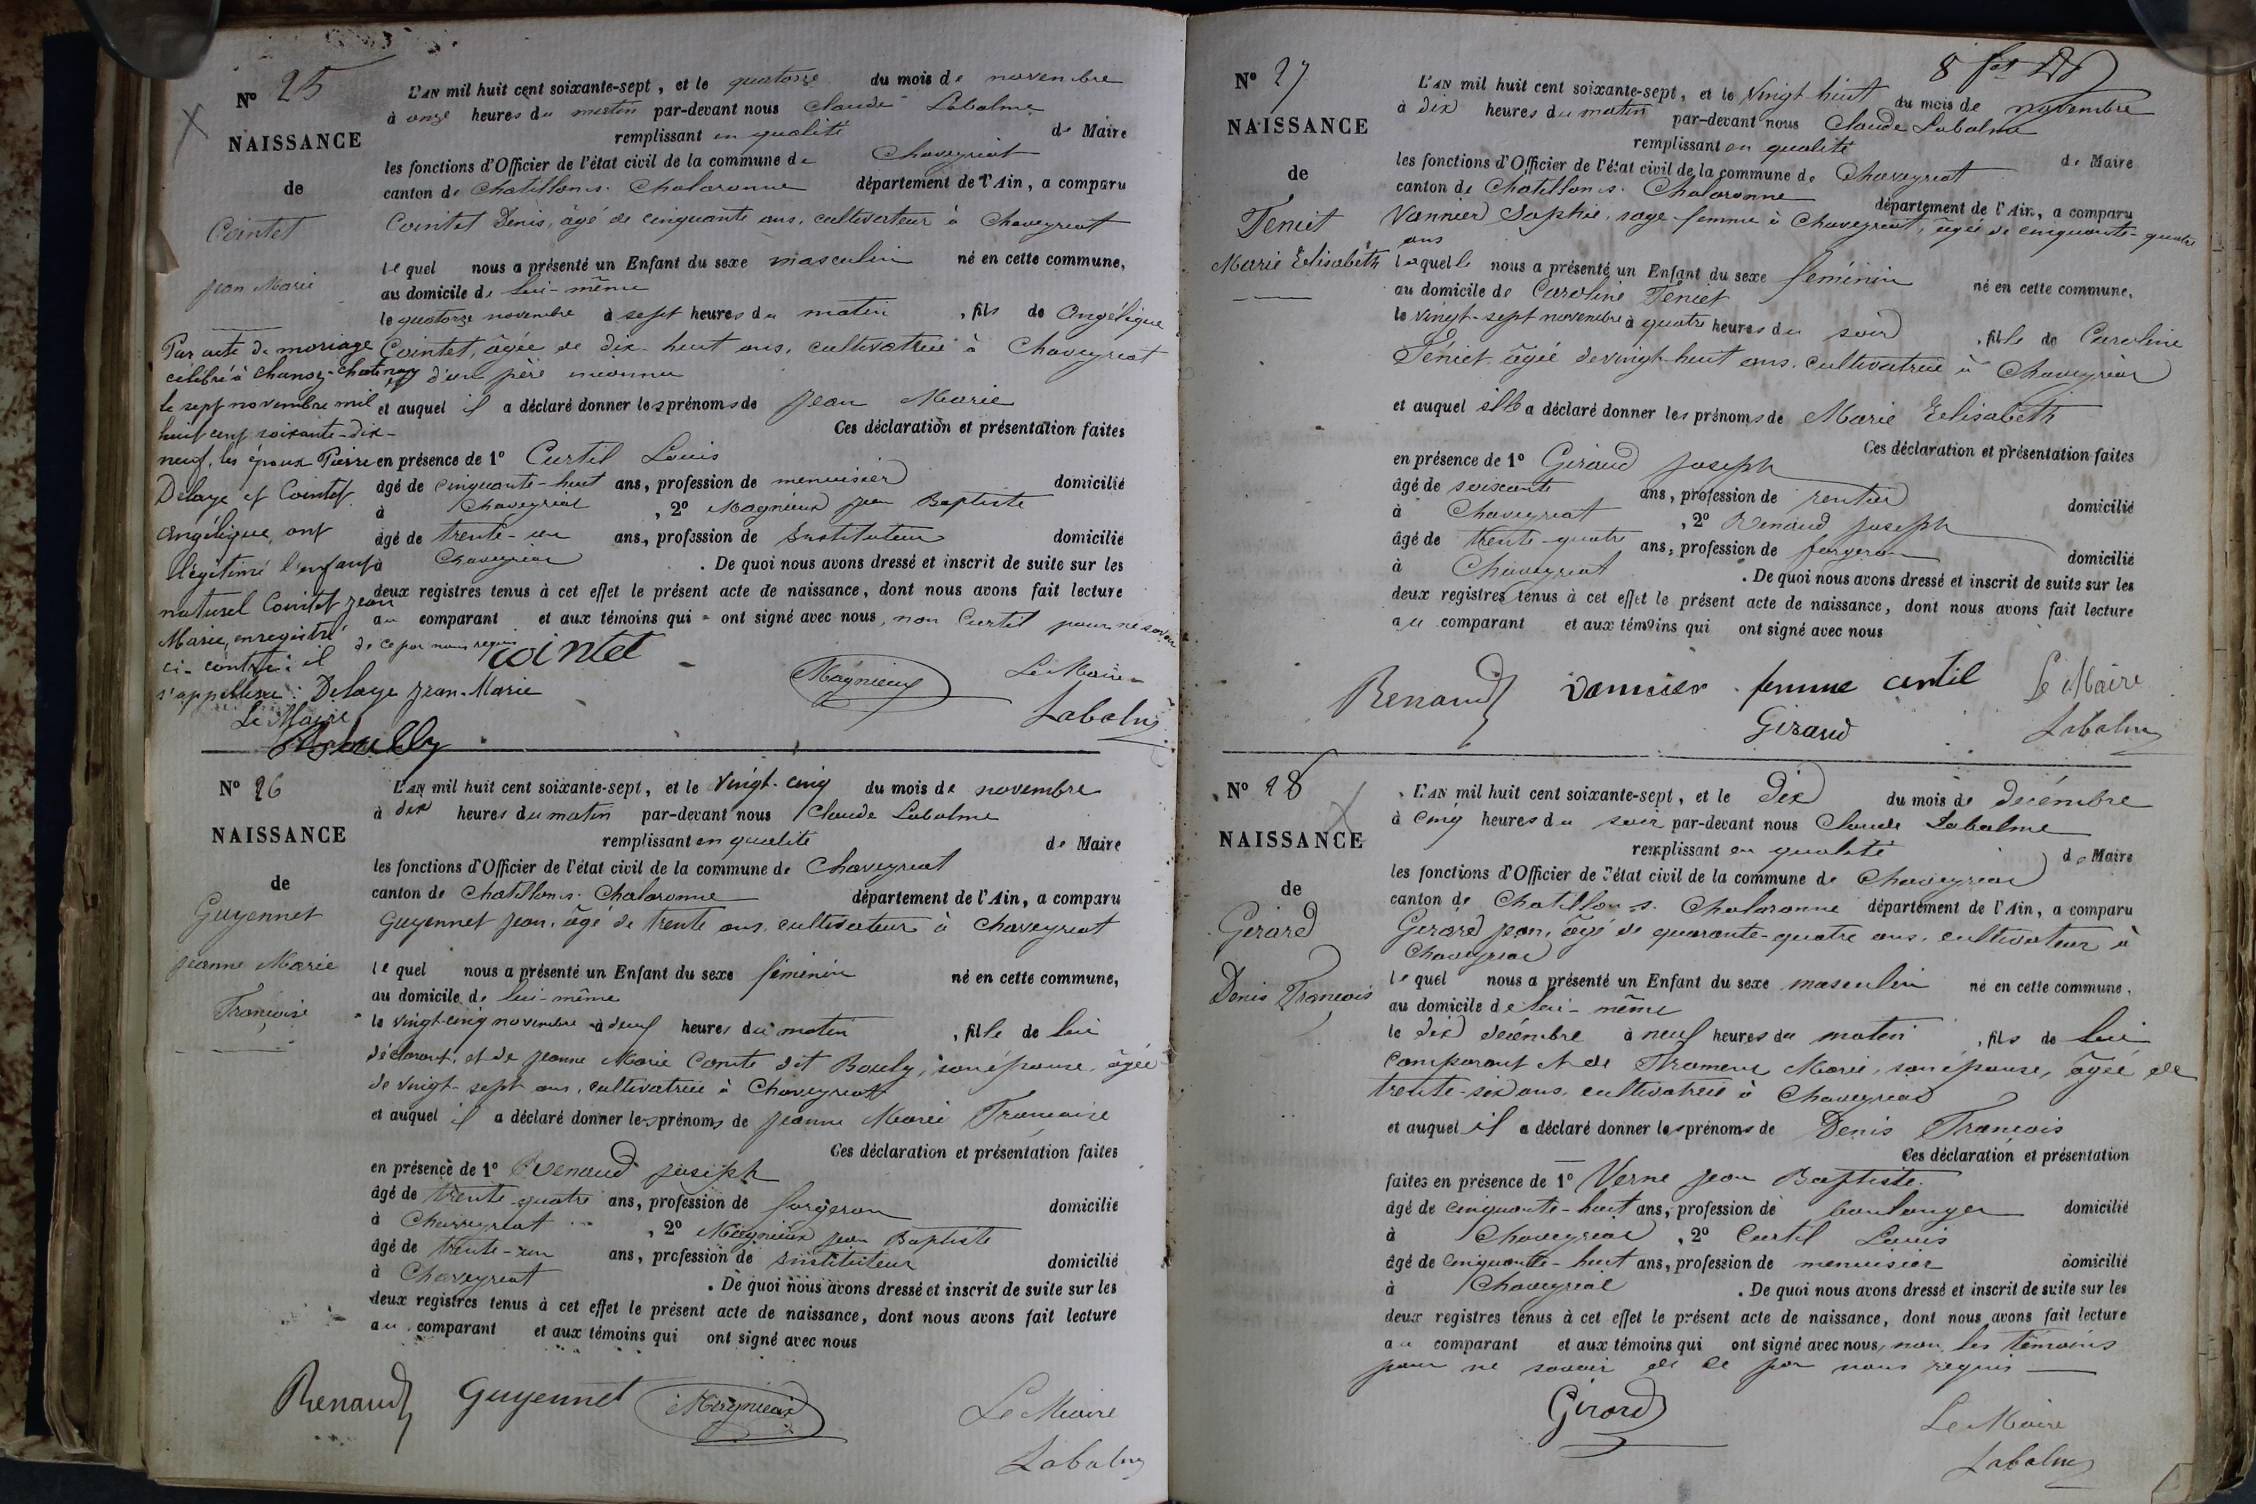 Nº 25
NAISSANCE
de
Cointet
Jean Marie
L'AN mil huit cent soixante-sept, et le quatorze du mois de novembre
à onze heures du matin par-devant nous Claude Labalme
remplissant en qualité de Maire
les fonctions d'Officier de l'état civil de la commune de Chaveyriat
canton de Chatillon s. Chalaronne département de l'Ain, a comparu
Cointet Denis, âgé de cinquante ans, cultivateur à Chaveyriat
lequel nous a présenté un Enfant du sexe masculin né en cette commune,
au domicile de lui-même
le quatorze novembre à sept heures du matin, fils de Angélique
Cointet, âgée de dix-huit ans, cultivatrice à Chaveyriat
d'un père inconnu
et auquel il a déclaré donner les prénoms de Jean Marie
Ces déclaration et présentation faites
en présence de 1º Curtil Louis
âgé de cinquante-huit ans, profession de menuisier domicilié
à Chaveyriat, 2º Magnieux Jean Baptiste
âgé de trente-un ans, profession de Instituteur domicilié
à Chaveyriat. De quoi nous avons dressé et inscrit de suite sur les
deux registres tenus à cet effet le présent acte de naissance, dont nous avons fait lecture
au comparant et aux témoins qui ont signé avec nous, non Curtil pour ne savoir
de ce par nous requis
Cointet Magnieux Le Maire
Labalme
Par acte de mariage
célébré à Chanoz-Chatenay
le sept novembre mil
huit cent soixante-dix-
neuf, les époux Pierre
Delaye et Cointet
Angélique, ont
légitimé l'enfant
naturel Cointet Jean
Marie, enregistré
ci-contre: il
s'appellera: Delaye Jean-Marie
Le Maire
Nº 26
NAISSANCE
de
Guyennet
Jeanne Marie
Françoise
L'AN mil huit cent soixante-sept, et le vingt-cinq du mois de novembre
à dix heures du matin par-devant nous Claude Labalme
remplissant en qualité de Maire
les fonctions d'Officier de l'état civil de la commune de Chaveyriat
canton de Chatillon s. Chalaronne département de l'Ain, a comparu
Guyennet Jean, âgé de trente ans, cultivateur à Chaveyriat
lequel nous a présenté un Enfant du sexe féminin né en cette commune,
au domicile de lui-même
le vingt-cinq novembre à deux heures du matin, fille de lui
déclarant, et de Jeanne Marie Comte dit Bouly, son épouse, âgée
de vingt-sept ans, cultivatrice à Chaveyriat
et auquel il a déclaré donner les prénoms de Jeanne Marie Françoise
Ces déclaration et présentation faites
en présence de 1º Renaud Joseph
âgé de trente-quatre ans, profession de forgeron domicilié
à Chaveyriat, 2º Magnieux Jean Baptiste
âgé de trente-un ans, profession de Instituteur domicilié
à Chaveyriat. De quoi nous avons dressé et inscrit de suite sur les
deux registres tenus à cet effet le présent acte de naissance, dont nous avons fait lecture
au comparant et aux témoins qui ont signé avec nous
Renaud Guyennet Magnieux Le Maire
Labalme
Nº 27
NAISSANCE
de
Feniet
Marie Elisabeth
L'AN mil huit cent soixante-sept, et le vingt huit du mois de novembre
à dix heures du matin par-devant nous Claude Labalme
remplissant en qualité de Maire
les fonctions d'Officier de l'état civil de la commune de Chaveyriat
canton de Chatillon s. Chalaronne département de l'Ain, a comparu
Vannier Sophie, sage-femme à Chaveyriat, âgée de cinquante-quatre
ans
laquelle nous a présenté un Enfant du sexe féminin né en cette commune,
au domicile de Caroline Feniet
le vingt-sept novembre à quatre heures du soir, fille de Caroline
Feniet âgée de vingt-huit ans, cultivatrice à Chaveyriat
et auquel elle a déclaré donner les prénoms de Marie Elisabeth
Ces déclaration et présentation faites
en présence de 1º Giraud Joseph
âgé de soixante ans, profession de rentier domicilié
à Chaveyriat, 2º Renaud Joseph
âgé de trente-quatre ans, profession de forgeron domicilié
à Chaveyriat. De quoi nous avons dressé et inscrit de suite sur les
deux registres tenus à cet effet le présent acte de naissance, dont nous avons fait lecture
au comparant et aux témoins qui ont signé avec nous
Renaud Vannier femme Curtil Le Maire
Giraud Labalme
Nº 28
NAISSANCE
de
Girard
Denis François
L'AN mil huit cent soixante-sept, et le dix du mois de décembre
à cinq heures du soir par-devant nous Claude Labalme
remplissant en qualité de Maire
les fonctions d'Officier de l'état civil de la commune de Chaveyriat
canton de Chatillon s. Chalaronne département de l'Ain, a comparu
Girard Jean, âgé de quarante-quatre ans, cultivateur à
Chaveyriat
lequel nous a présenté un Enfant du sexe masculin né en cette commune,
au domicile de lui-même
le dix décembre à neuf heures du matin, fils de lui
comparant et de Froment Marie, son épouse, âgée de
trente-six ans, cultivatrice à Chaveyriat
et auquel il a déclaré donner les prénoms de Denis François
Ces déclaration et présentation
faites en présence de 1º Verne Jean Baptiste
âgé de cinquante-huit ans, profession de boulanger domicilié
à Chaveyriat, 2º Curtil Louis
âgé de cinquante-huit ans, profession de menuisier domicilié
à Chaveyriat. De quoi nous avons dressé et inscrit de suite sur les
deux registres tenus à cet effet le présent acte de naissance, dont nous avons fait lecture
au comparant et aux témoins qui ont signé avec nous, non les témoins
pour ne savoir de ce par nous requis
Girard Le Maire
Labalme